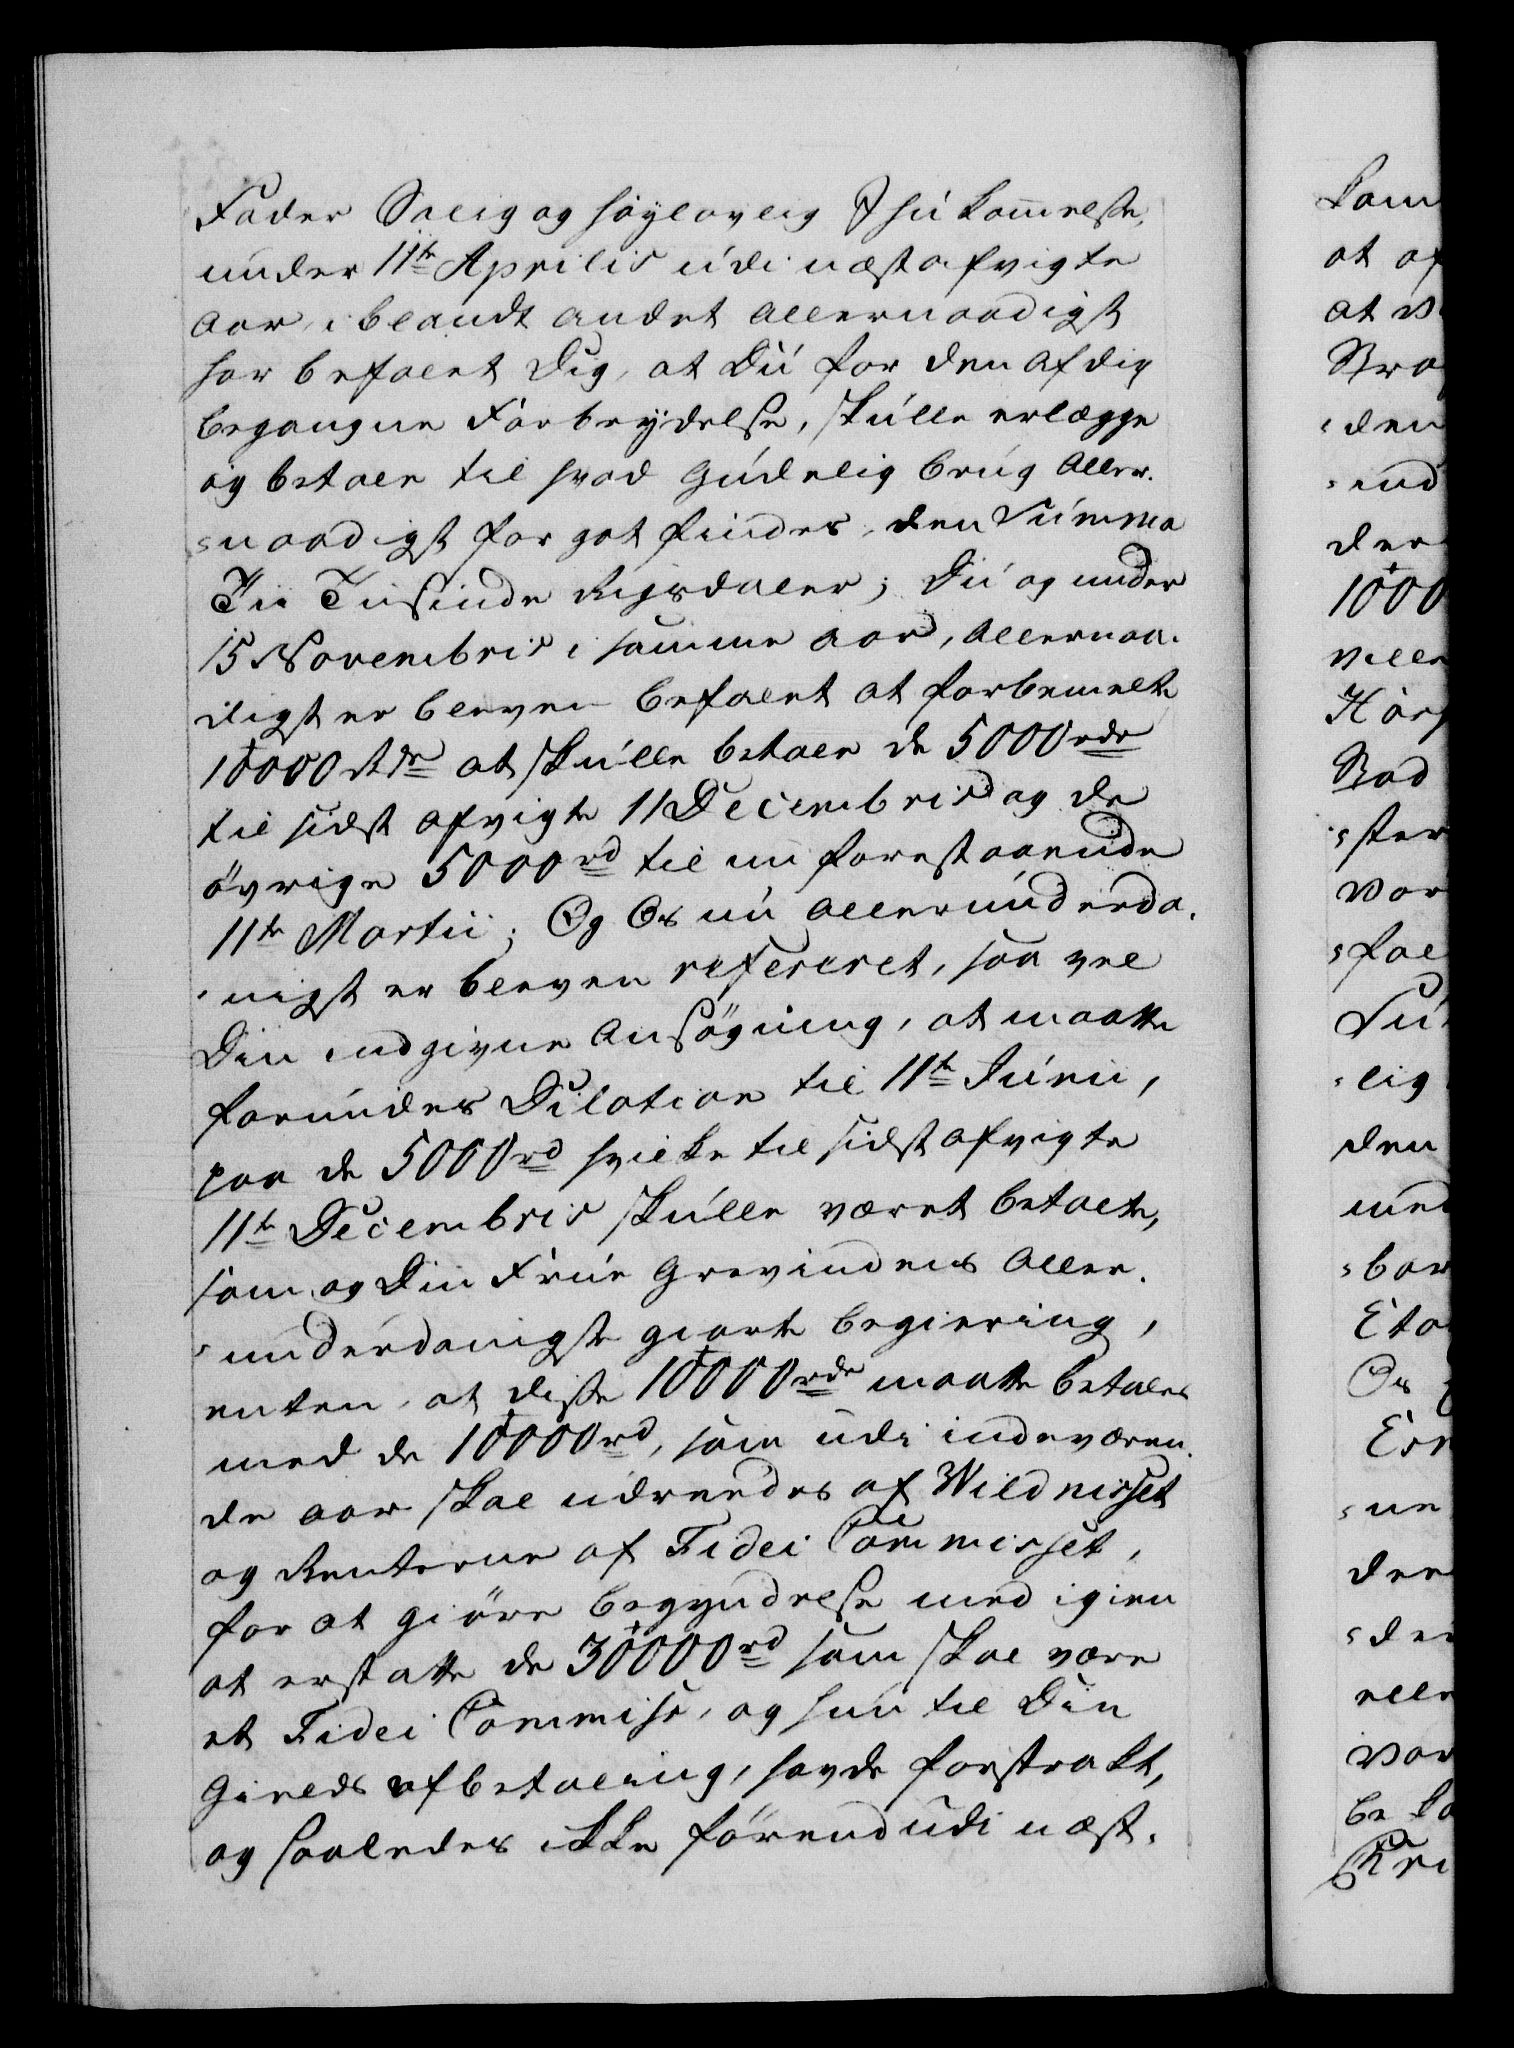 Fader Salig og høylovlig Ihukommelse,
under 11te Aprilis udi næstafvigte
Aar, iblandt andet allernaadigst
har befalet Dig, at Du for den af dig
begangne Forbrydelse, skulle erlægge
og betale til hvad Gudelig brug Aller-
naadigst for got findes, den Summa
Tii Tusinde Rijsdaler; Du og under
15 Novembris i samme aar, Allernaa-
digst er bleven befalet at forbemelte
10000 Rdr at skulle betale de 5000 rdr
til sidst afvigte 11 Decembris og de
øvrige 5000 rd til nu forestaaende
11te Martii; Og Os nu allerunderda-
nigst er bleven refereret, saa vel
Din indgivne Ansøgning, at maatte
forundes Dilation til 11te Junii,
paa de 5000 rd hvilke til sidst afvigte
11te Decembris skulle været betalte,
som og Din Frue Grevindens Aller-
underdanigste giorte begiering,
enten, at disse 10000 rdr maatte betales
med de 10000 rd, som udi indeværen-
de aar skal udreedes af Wildnisset
og Renterne af Fidei Commisset,
for at giøre begyndelse med igien
at erstatte de 30000 rd som skal være
et Fidei Commiss, og hun til Din
Gields afbetaling, havde forstrakt,
og saaledes ikke førend udi næst-
Kom
at af
at
den
ind
der
1000
ville
Rad
ster
vor
fal
lig
den
med
bar
Os
ne
den
vor